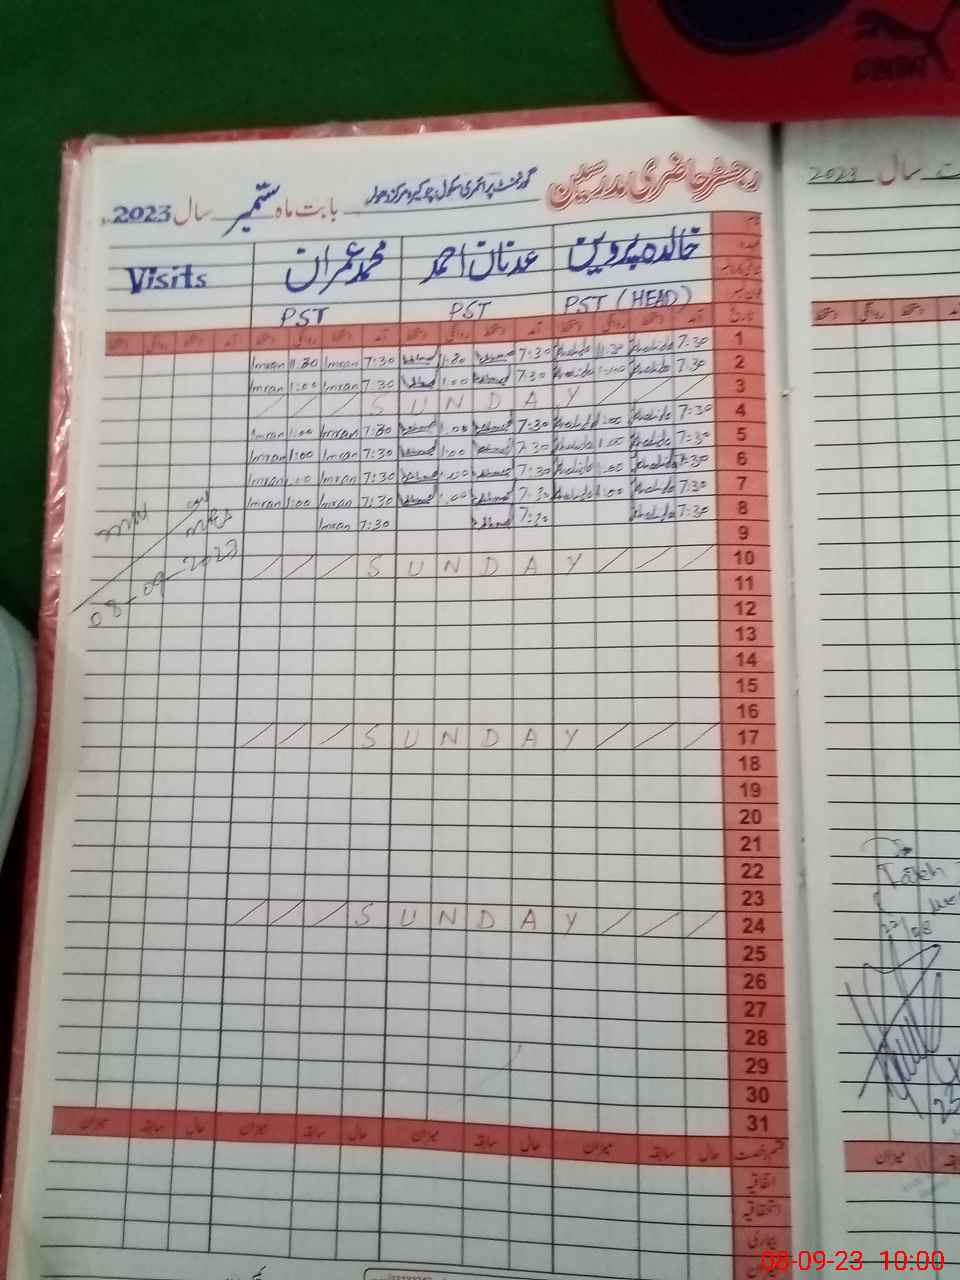 رجسٹر حاضری مدرسین گورنمنٹ پرائمری سکول بابت ماہ ستمبر سال 2023
خالدہ پروین عدنان احمد محمد عمران Visits
PST (HEAD) PST PST
1 7:30 Khalida 11:30 Khalida 7:30 Ahmad 11:30 Ahmad 7:30 Imran 11:30 Imran
2 7:30 Khalida 1:00 Khalida 7:30 Ahmad 1:00 Ahmad 7:30 Imran 1:00 Imran
3 SUNDAY
4 7:30 Khalida 1:00 Khalida 7:30 Ahmad 1:00 Ahmad 7:30 Imran 1:00 Imran
5 7:30 Khalida 1:00 Khalida 7:30 Ahmad 1:00 Ahmad 7:30 Imran 1:00 Imran
6 7:30 Khalida 1:00 Khalida 7:30 Ahmad 1:00 Ahmad 7:30 Imran 1:00 Imran
7 7:30 Khalida 1:00 Khalida 7:30 Ahmad 1:00 Ahmad 7:30 Imran 1:00 Imran
8 7:30 Khalida 7:30 Ahmad 7:30 Imran
9
08-09-2023
10 SUNDAY
11
12
13
14
15
16
17 SUNDAY
18
19
20
21
22
23
24 SUNDAY
25
26
27
28
29
30
31
حال سابقہ میزان حال سابقہ میزان حال سابقہ میزان
اتفاقیہ
استحقاقیہ
بیماری
2023 سال
22/08
08-09-23 10:00